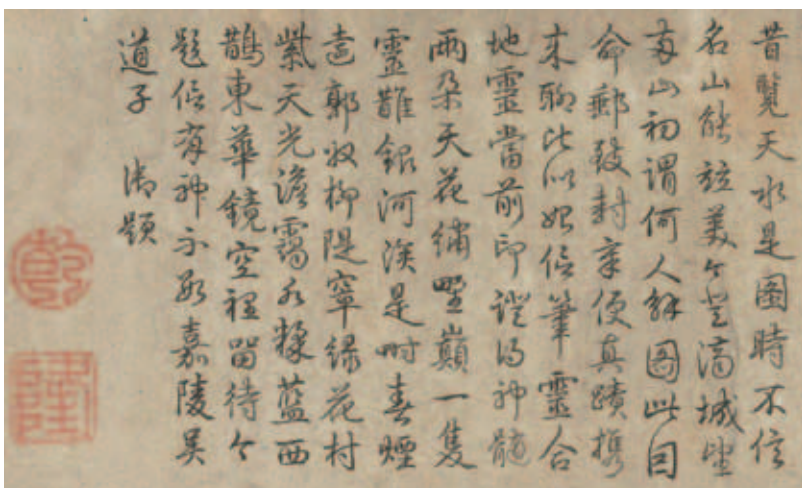 昔覽天水是圖時不信
名山能竝美今登濟城望
兩山初謂何人解圖此因
命郵致封章便真蹟攜
來聊比似始信筆靈合
地靈當前印證得神髓
兩朶天花繡野巔一隻
靈鵲銀河涘是時春煙
遠郭收柳隄窣綠花村
紫天光澹靄水揉藍西
鵲東華鏡空裡留待今
題信有神不數嘉陵吳
道子 御題
乾
隆